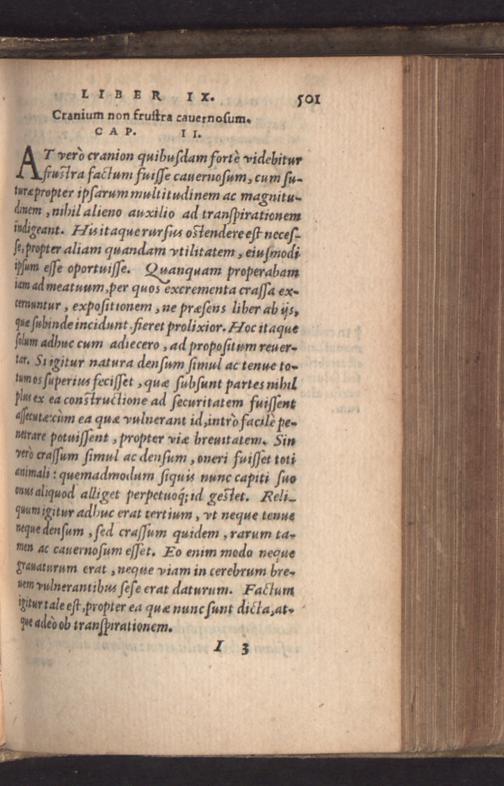 LIBER IX. 501
Cranium non frustra cauernosum.
CAP. II.
AT verò cranion quibusdam fortè videbitur
frustra factum fuisse cauernosum, cum su-
turæ propter ipsarum multitudinem ac magnitu-
dinem, nihil alieno auxilio ad transpirationem
indigeant. His itaque rursius ostendere est neces-
se, propter aliam quandam vtilitatem, eiusmodi
ipsum esse oportuisse. Quanquam properabam
iam ad meatuum, per quos excrementa crassa ex-
cernuntur, expositionem, ne præsens liber ab ijs,
quæ subinde incidunt, fieret prolixior. Hoc itaque
solum adhuc cum adiecero, ad propositum reuer-
tar. Si igitur natura densum simul ac tenue to-
tum os superius fecisset, quæ subsunt partes nihil
plus ex ea constructione ad securitatem fuissent
assecutæ: cùm ea quæ vulnerant id, intrò facilè pe-
netrare potuissent, propter viæ breuitatem. Sin
verò crassum simul ac densum, oneri fuisset toti
animali: quemadmodum siquis nunc capiti suo
onus aliquod alliget perpetuoq; id gestet. Reli-
quum igitur adhuc erat tertium, vt neque tenue
neque densum, sed crassum quidem, rarum ta-
men ac cauernosum esset. Eo enim modo neque
grauaturum erat, neque viam in cerebrum bre-
uem vulnerantibus sese erat daturum. Factum
igitur tale est, propter ea quæ nunc sunt dicta, at-
que adeò ob transpirationem.
I 3